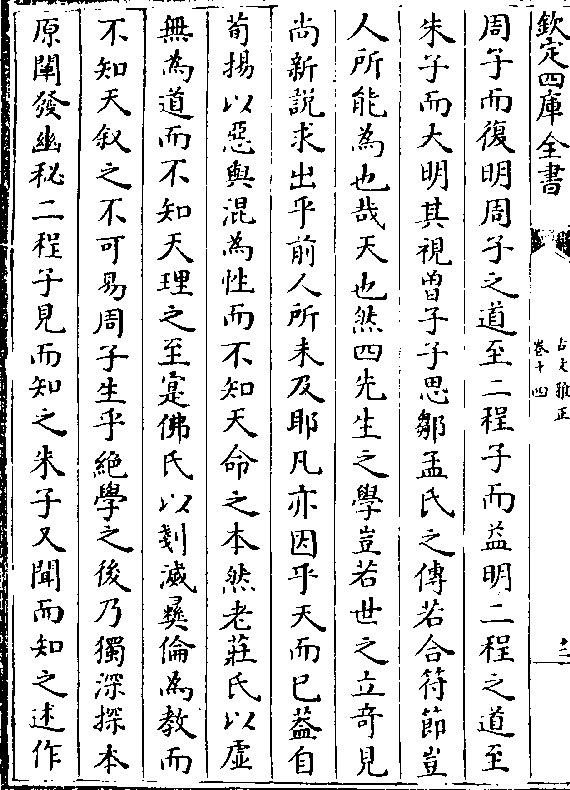 欽定四庫全書
古文雅正
卷十四
十二
周子而復明周子之道至二程子而益明二程之道至
朱子而大明其視曾子子思鄒孟氏之傳若合符節豈
人所能為也哉天也然四先生之學豈若世之立竒見
尚新説求出乎前人所未及耶凡亦因乎天而已葢自
荀揚以惡與混為性而不知天命之本然老莊氏以虚
無為道而不知天理之至寔佛氏以剗滅彛倫為教而
不知天叙之不可易周子生乎絶學之後乃獨深探本
原闡發幽秘二程子見而知之朱子又聞而知之述作